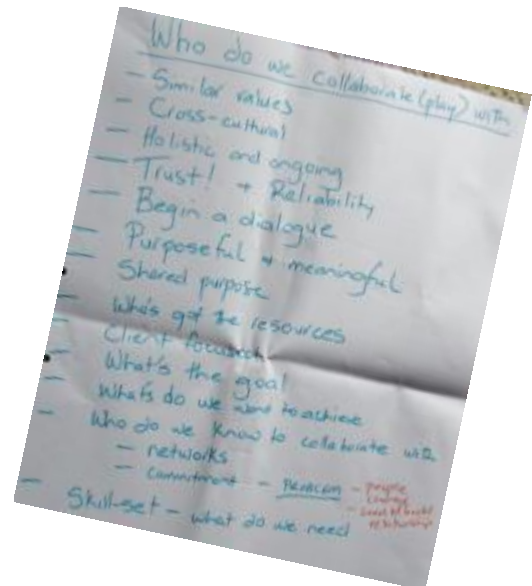 Who do we collaborate (play) with
- Similar values
- Cross-cultural
- Holistic and ongoing
- Trust! + Reliability
- Begin a dialogue
- Purposeful + meaningful
- Shared purpose
- Who's got the resources
- Client focussed
- What's the goal
- What's do we want to achieve
- Who do we know to collaborate with
- networks
- commitment - PROBLEM - people
change
- need to build
relationships
- Skill-set - what do we need